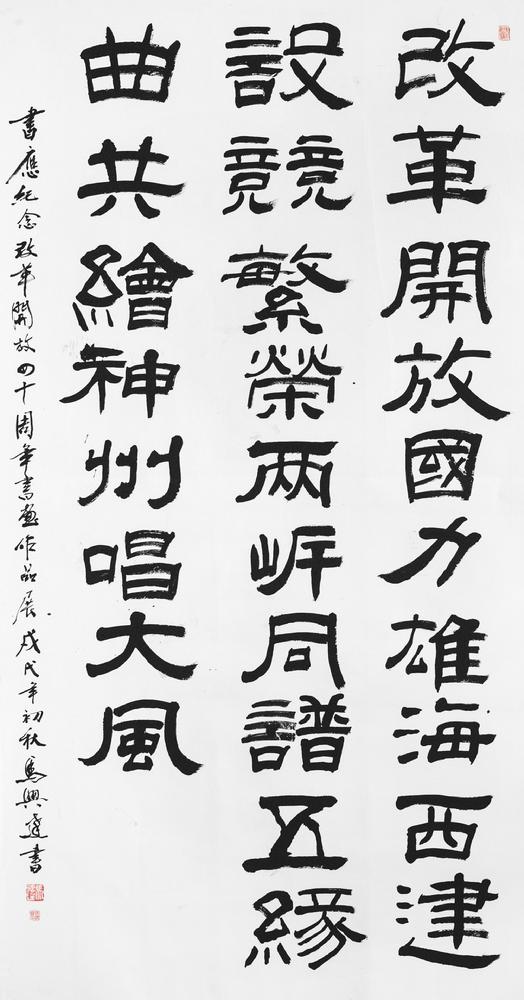 改革開放國力雄海西建
設競繁榮兩岸同譜五緣
曲共繪神州唱大風
書應紀念改革開放四十周年書畫作品展戊戌年初秋馬興達書